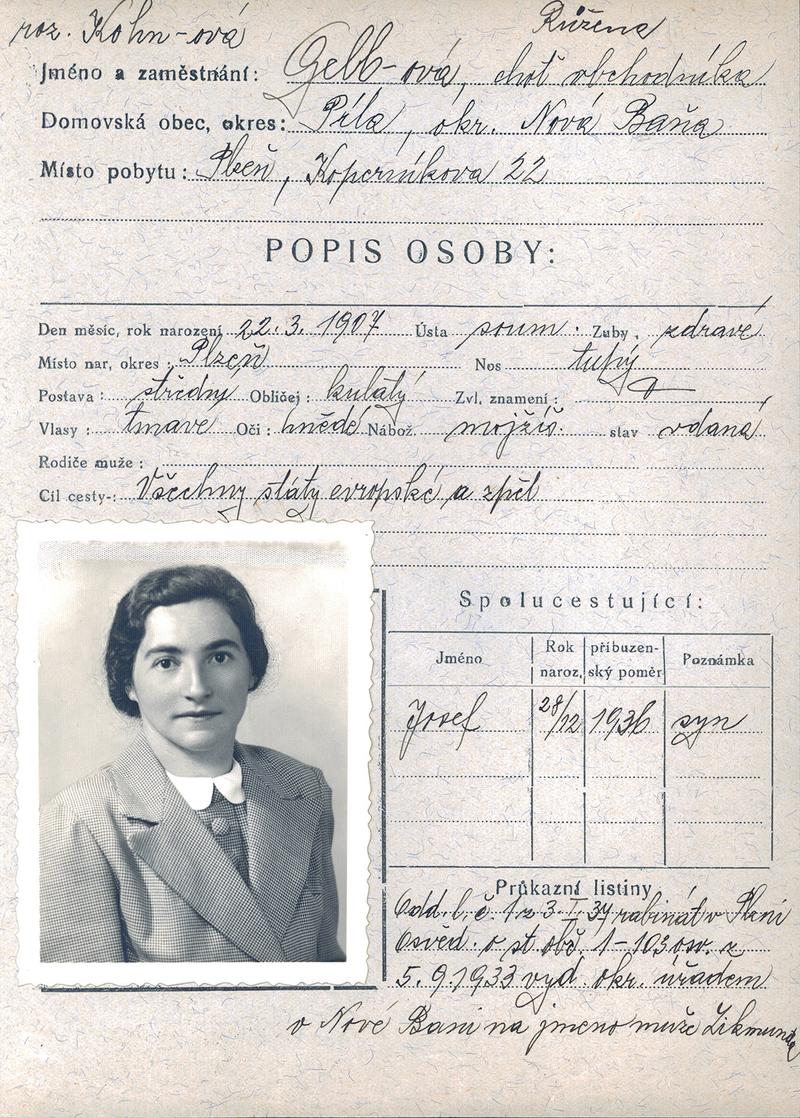 roz. Kohn-ová Růžena
Jméno a zaměstnání: Gelb-ová, choť obchodníka
Domovská obec, okres: Píla, okr. Nová Baňa
Místo pobytu: Plzeň, Koperníkova 22
POPIS OSOBY:
Den měsíc, rok narození 22.3. 1907 Ústa soum. Zuby. zdravé
Místo nar, okres: Plzeň Nos tupý
Postava: střední Obličej: kulatý Zvl, znamení:
Vlasy: tmavé Oči: hnědé Nábož. mojžíš. stav vdaná
Rodiče muže:
Cíl cesty-: Všechny státy evropské a zpět
Spolucestující:
Jméno Rok naroz. příbuzenský poměr Poznámka
Josef 28/12 1936 syn
Průkazní listiny
Odd. l. č 1 z 3. I. 34 rabinát v Plzni
Osvěd. o st. obč. 1-103 z
5.9.1933 vyd. okr. úřadem
v Nové Bani na jmeno muže Zikmunda